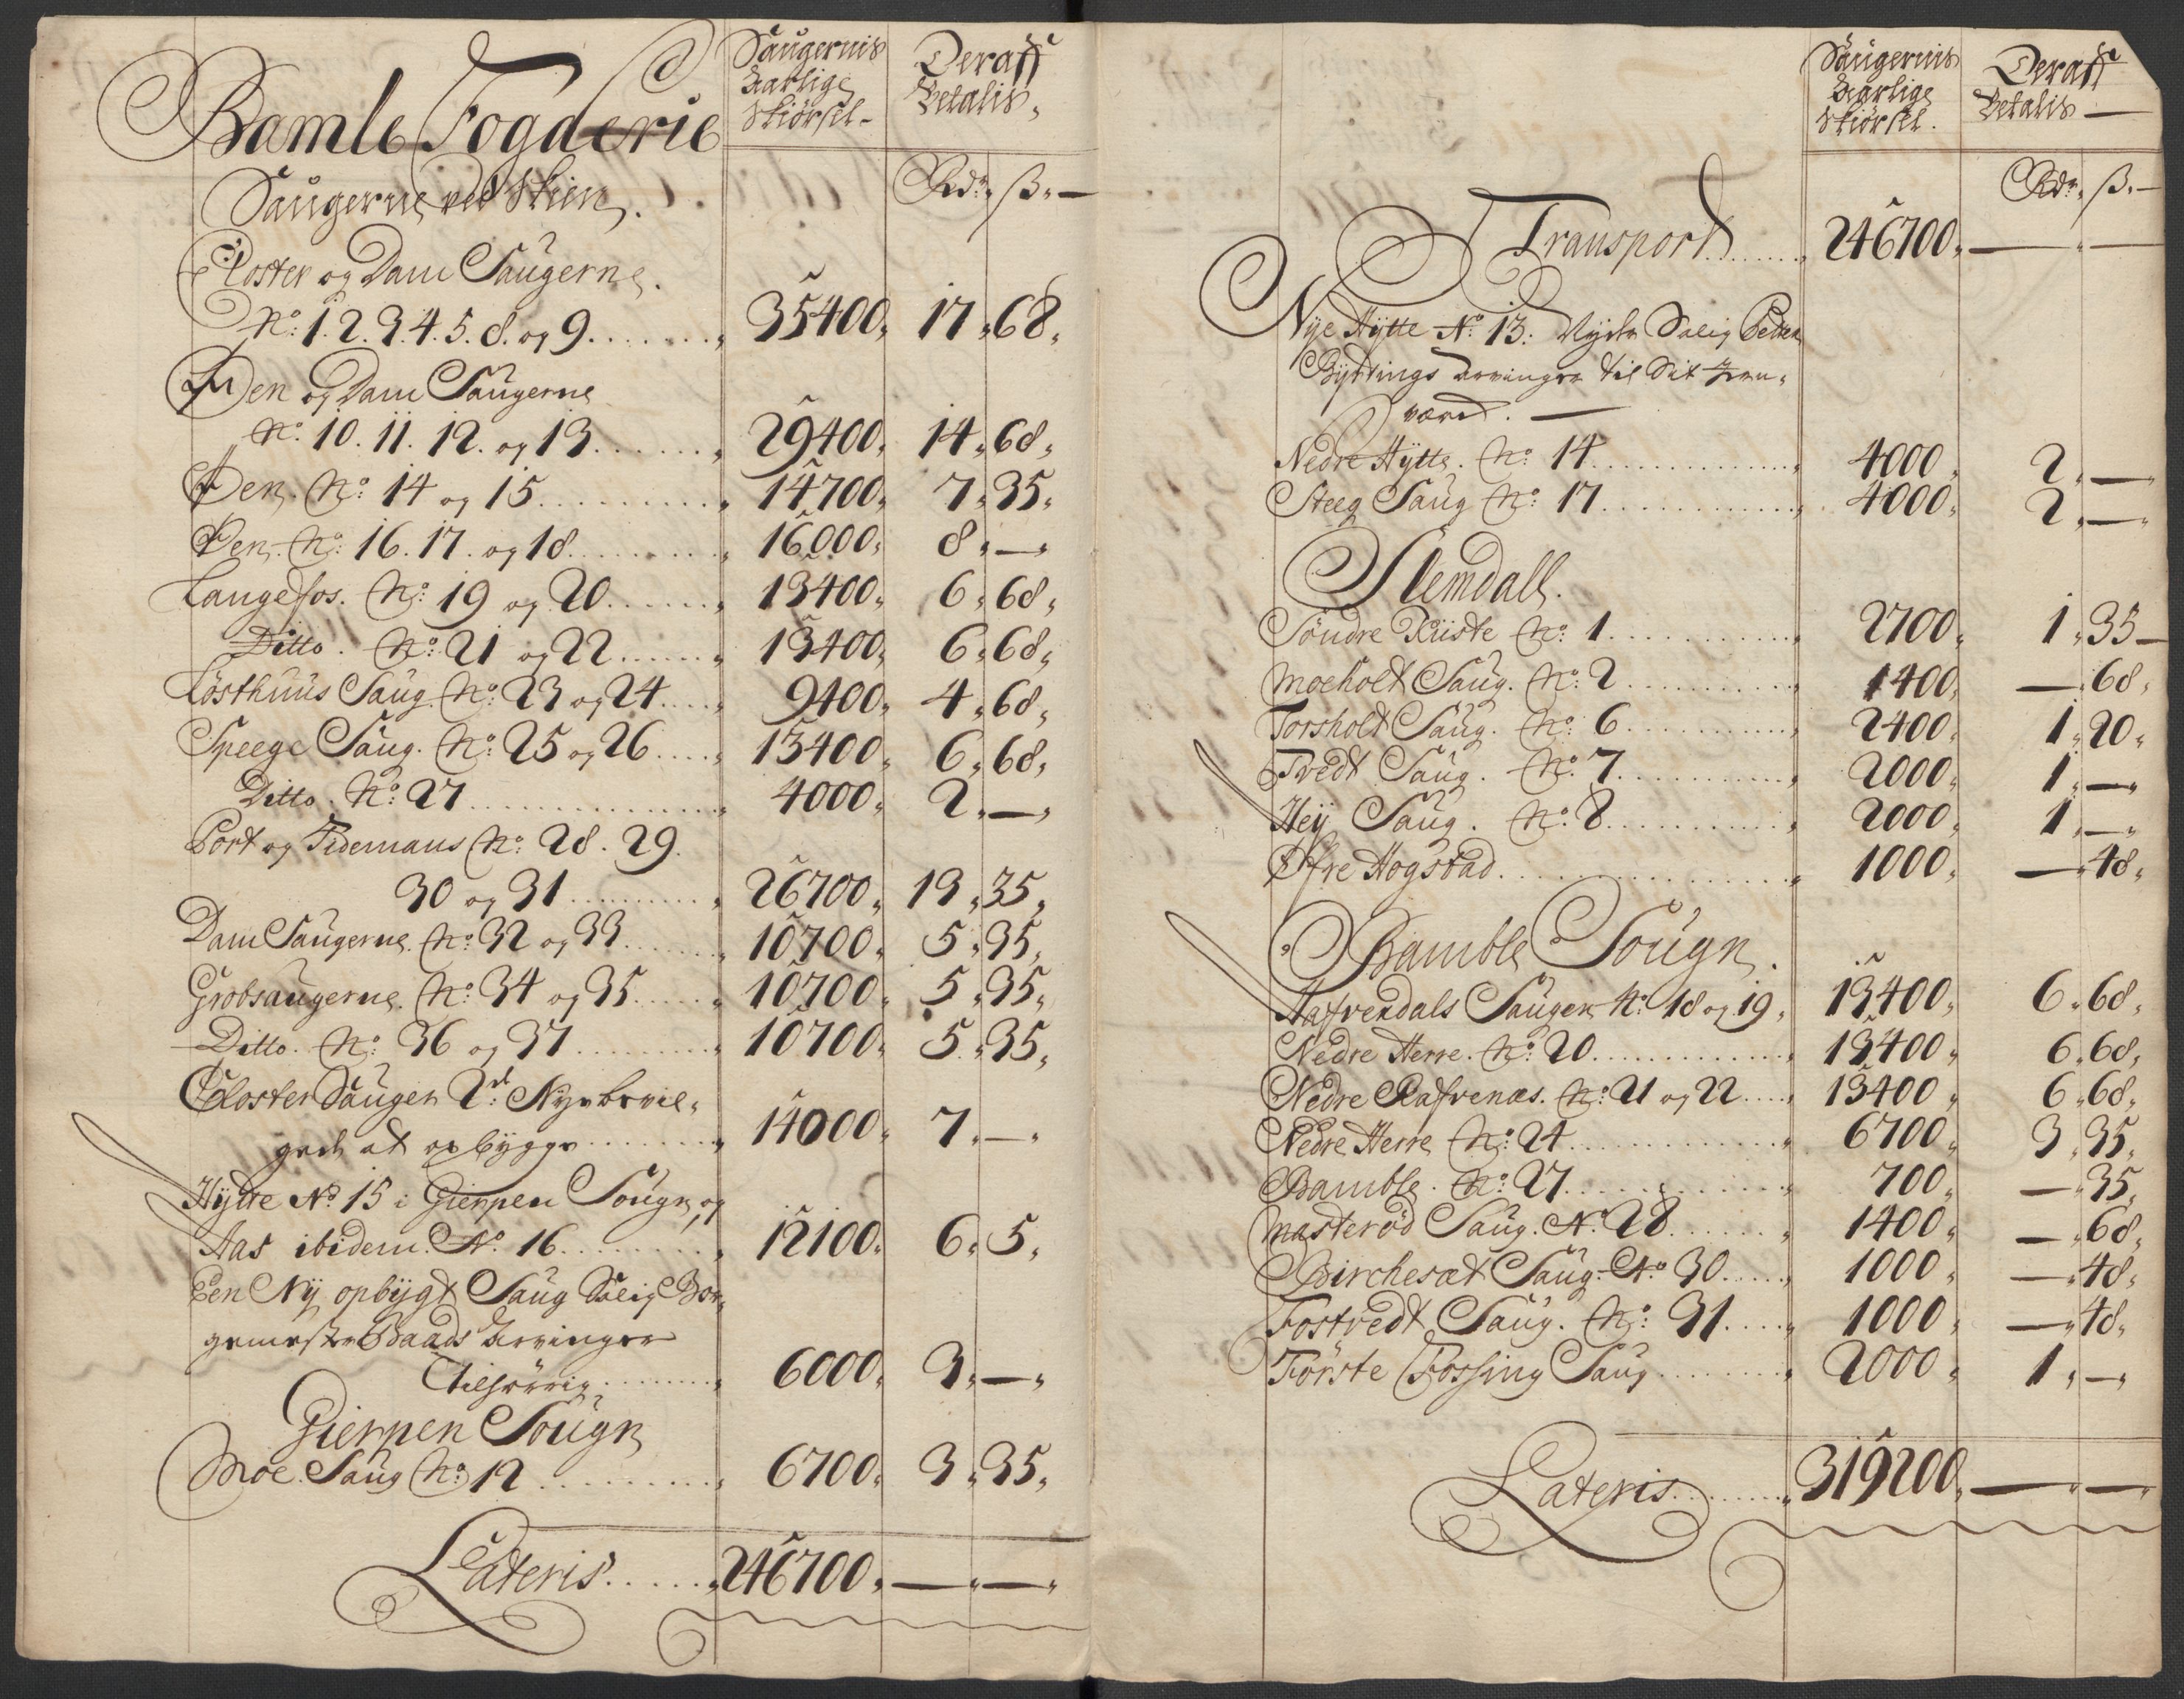 Bamle Fogderie
Saugernis
Aarlige
Skiørsel
Deraff
Betalis
Saugerne ved Skien.
Rdr. ß.
Closter og Dam Saugerne.
No: 1. 2. 3. 4. 5. 8. og 9. 35400. 17. 68.
Den og Dam Saugerne
No. 10. 11. 12. og 13. 29400. 14. 68.
Den. No: 14 og 15. 14700. 7. 35.
Den. No: 16. 17. og 18. 16000. 8. —
Langefos. No: 19 og 20. 13400. 6. 68.
Ditto. No: 21 og 22. 13400. 6. 68.
Lösthuus Saug. No: 23 og 24. 9400. 4. 68.
Speege Saug. No: 25 og 26. 13400. 6. 68.
Ditto. No: 27. 4000. 2. —
Port og Tidemans No: 28. 29.
30 og 31. 26700. 13. 35.
Dam Saugerne. No: 32 og 33. 10700. 5. 35.
Grobsaugerne. No: 34 og 35. 10700. 5. 35.
Ditto. No: 36 og 37. 10700. 5. 35.
Closter Sauger 2de Nye bevil-
ged at opbygge 14000. 7. —
Hytte No. 15 i Gierpen Sougn og
Aas ibidem. No. 16. 12100. 6. 5.
Een Ny opbygt Saug Salig Bor-
gemester Baads Arvinger
Tilhörrig 6000. 3. —
Gierpen Sougn
Moe. Saug No: 12 6700. 3. 35.
Lateris. 246700. — —
Saugernis
Aarlige
Skiørsel.
Deraff
Betalis
Rdr. ß.
Transport 246700. — —
Nye Hytte No. 13. Nyder Salig Peder
Byrtings Arvinger til Sit Jern-
værd. —
Nedre Hytte. No: 14. 4000. 2. —
Steeg Saug No: 17. 4000. 2. —
Slemdall.
Söndre Riiste No: 1. 2700. 1. 35
Moeholt Saug. No: 2. 1400. — 68.
Torsholt Saug. No: 6. 2400. 1. 20.
Tvedt Saug. No. 7. 2000. 1. —
Heij Saug. No: 8. 2000. 1. —
Öfre Hogstad. 1000. — 48.
Bamble Sougn.
Aafvendals Sauger No. 18 og 19. 13400. 6. 68.
Nedre Herre. No: 20. 13400. 6. 68.
Nedre Rafvenæs. No: 21 og 22. 13400. 6. 68.
Nedre Herre No: 24. 6700. 3. 35.
Bamble. No: 27. 700. — 35.
Masteröd Saug. No. 28. 1400. — 68.
Birchesæt Saug. No 30. 1000. — 48.
Fostvedt Saug. No: 31. 1000. — 48.
Förste Fossing Saug 2000. 1. —
Lateris. 319200. — —